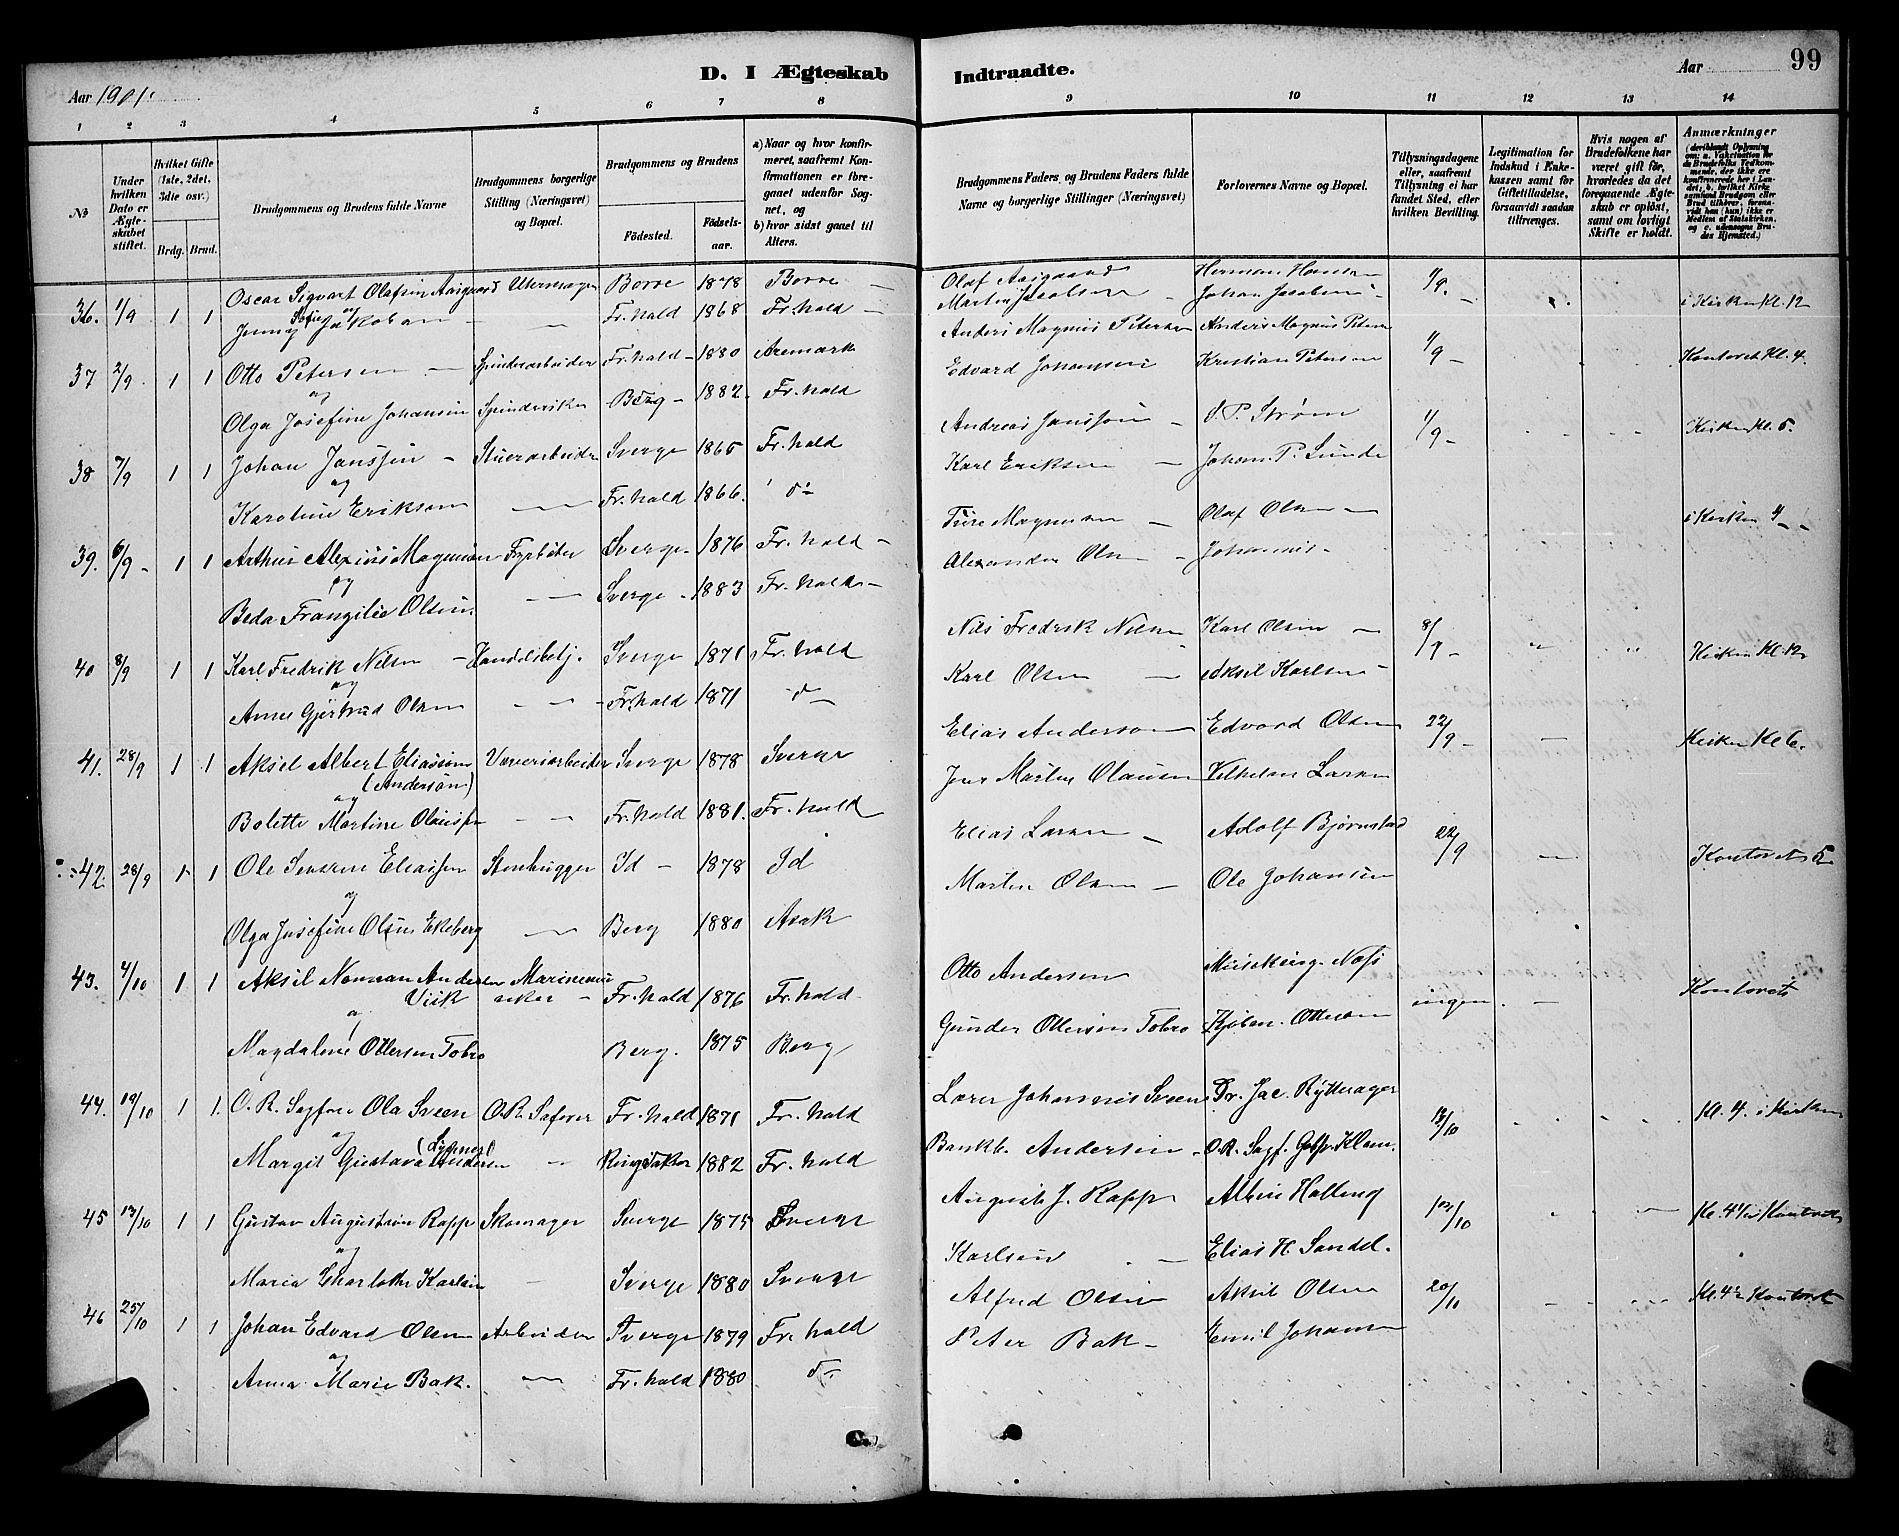 D. I Ægteskab Indtraadte.
Aar 1901. Aar 99
1 2 3 4 5 6 7 8 9 10 11 12 13 14
№
Under hvilken Dato er Ægteskabet stiftet.
Hvilket Gifte (1ste, 2det, 3die osv.)
Brdg. Brud.
Brudgommens og Brudens fulde Navne
Brudgommens borgerlige Stilling (Næringsvei) og Bopæl.
Brudgommens og Brudens
Fødested.
Fødselsaar.
a) Naar og hvor konfirmeret, saafremt Konfirmationen er foregaaet udenfor Sognet, og
b) hvor sidst gaaet til Alters.
Brudgommens Faders og Brudens Faders fulde Navne og borgerlige Stillinger (Næringsvei)
Forlovernes Navne og Bopæl.
Tillysningsdagene eller, saafremt Tillysning ei har fundet Sted, efter hvilken Bevilling.
Legitimation for Indskud i Enkekassen samt for Giftetilladelse, forsaavidt saadan tiltrænges.
Hvis nogen af Brudefolkene har været gift før, hvorledes da det foregaaende Ægteskab er opløst, samt om lovligt Skifte er holdt.
Anmærkninger
36. 1/9 1 1 Oscar Sigvart Olafsen Aasgaard Uhrmager Borre 1878 Borre Olaf Aasgaard Herman Hansen 1/9 i Kirken Kl. 12
og
Jenny Sofie Jakobsen Fr.hald 1868 Fr.hald Martin Jacobsen Johan Jacobsen
37 2/9 1 1 Otto Petersen Spinderarbeider Fr.hald 1880 Aremark Anders Magnus Petersen Anders Magnus Petersen 1/9 Kontoret Kl. 4
og
Olga Josefine Johansen Spinderske Berg 1882 Fr.hald Edvard Johansen Kristian Petersen
38 7/9 1 1 Johan Janssen Stuerarbeider Sverge 1865 Fr.hald Andreas Janssen O.P. Strøm 1/9 Kirken Kl. 5.
og
Karoline Eriksen Fr.hald 1866 do Karl Eriksen Johan P. Lunde
39. 6/9 1 1 Arthur Alexius Magnusen Fyrbøter Sverge 1876 Fr.hald Ture Magnusen Olaf Olsen i Kirken 4
og
Beda Olsen Sverge 1883 Fr.hald Alexander Olsen Johannes
40 8/9 1 1 Karl Fredrik Nilsen Handelsbetj. Sverge 1871 Fr.hald Nils Fredrik Nilsen Karl Olsen 8/9 Kirken Kl. 12
og
Anne Gjertrud Olsen Fr.hald 1871 do Karl Olsen Aksel Karlsen
41. 28/9 1 1 Aksel Albert Eliassen Væveriarbeider Sverge 1878 Sverge Elias Anderson Edvard Olsen 22/9 Kirken Kl 6
(Anderson)
og
Bolette Martine Olaussen Fr.hald 1881. Fr.hald Jens Martin Olausen Vilhelm Larsen
42. 28/9 1 1 Ole Eliassen Stenhugger Id 1878 Id Elias Larsen Adolf Bjørnstad 22/9 Kontoret 5
og
Olga Josefine Olsen Ekeberg Berg 1880 Asak Martin Olsen Ole Johansen
43. 4/10 1 1 Aksel Andersen Viik Fr.hald 1876 Fr.hald Otto Andersen ingen Kontoret
og
Magdalene Ottersen Tobro Berg. 1875 Berg Gunder Ottersen Tobro Ottersen
44. 19/10 1 1 O.R. Sagfører Ola Sveen O.R. Sagfører Fr.hald 1871 Fr.hald Lærer Johannes Sveen Dr. Jac. Rytterager 13/10 Kl. 4. i Kirken
og
Margit Gustava Andersen Ringsaker 1882 Fr.hald Bankb. Andersen O.R. Sagf.
45 13/10 1 1 Gustav Augustson Rapp Skomager Sverge 1875 Sverge August J. Rapp Albin Halling 13/10 Kontoret
og
Maria Charlotte Karlsen Sverge 1880 Sverge Karlsen Elias H. Sandel.
46 25/10 1 1 Johan Edvard Olsen Arbeider Sverge 1879 Fr.hald Alfred Olsen Aksel Olsen 20/10 Kontoret
og
Anna Marie Bak. Fr.hald 1880 do Peter Bak Emil Johansen